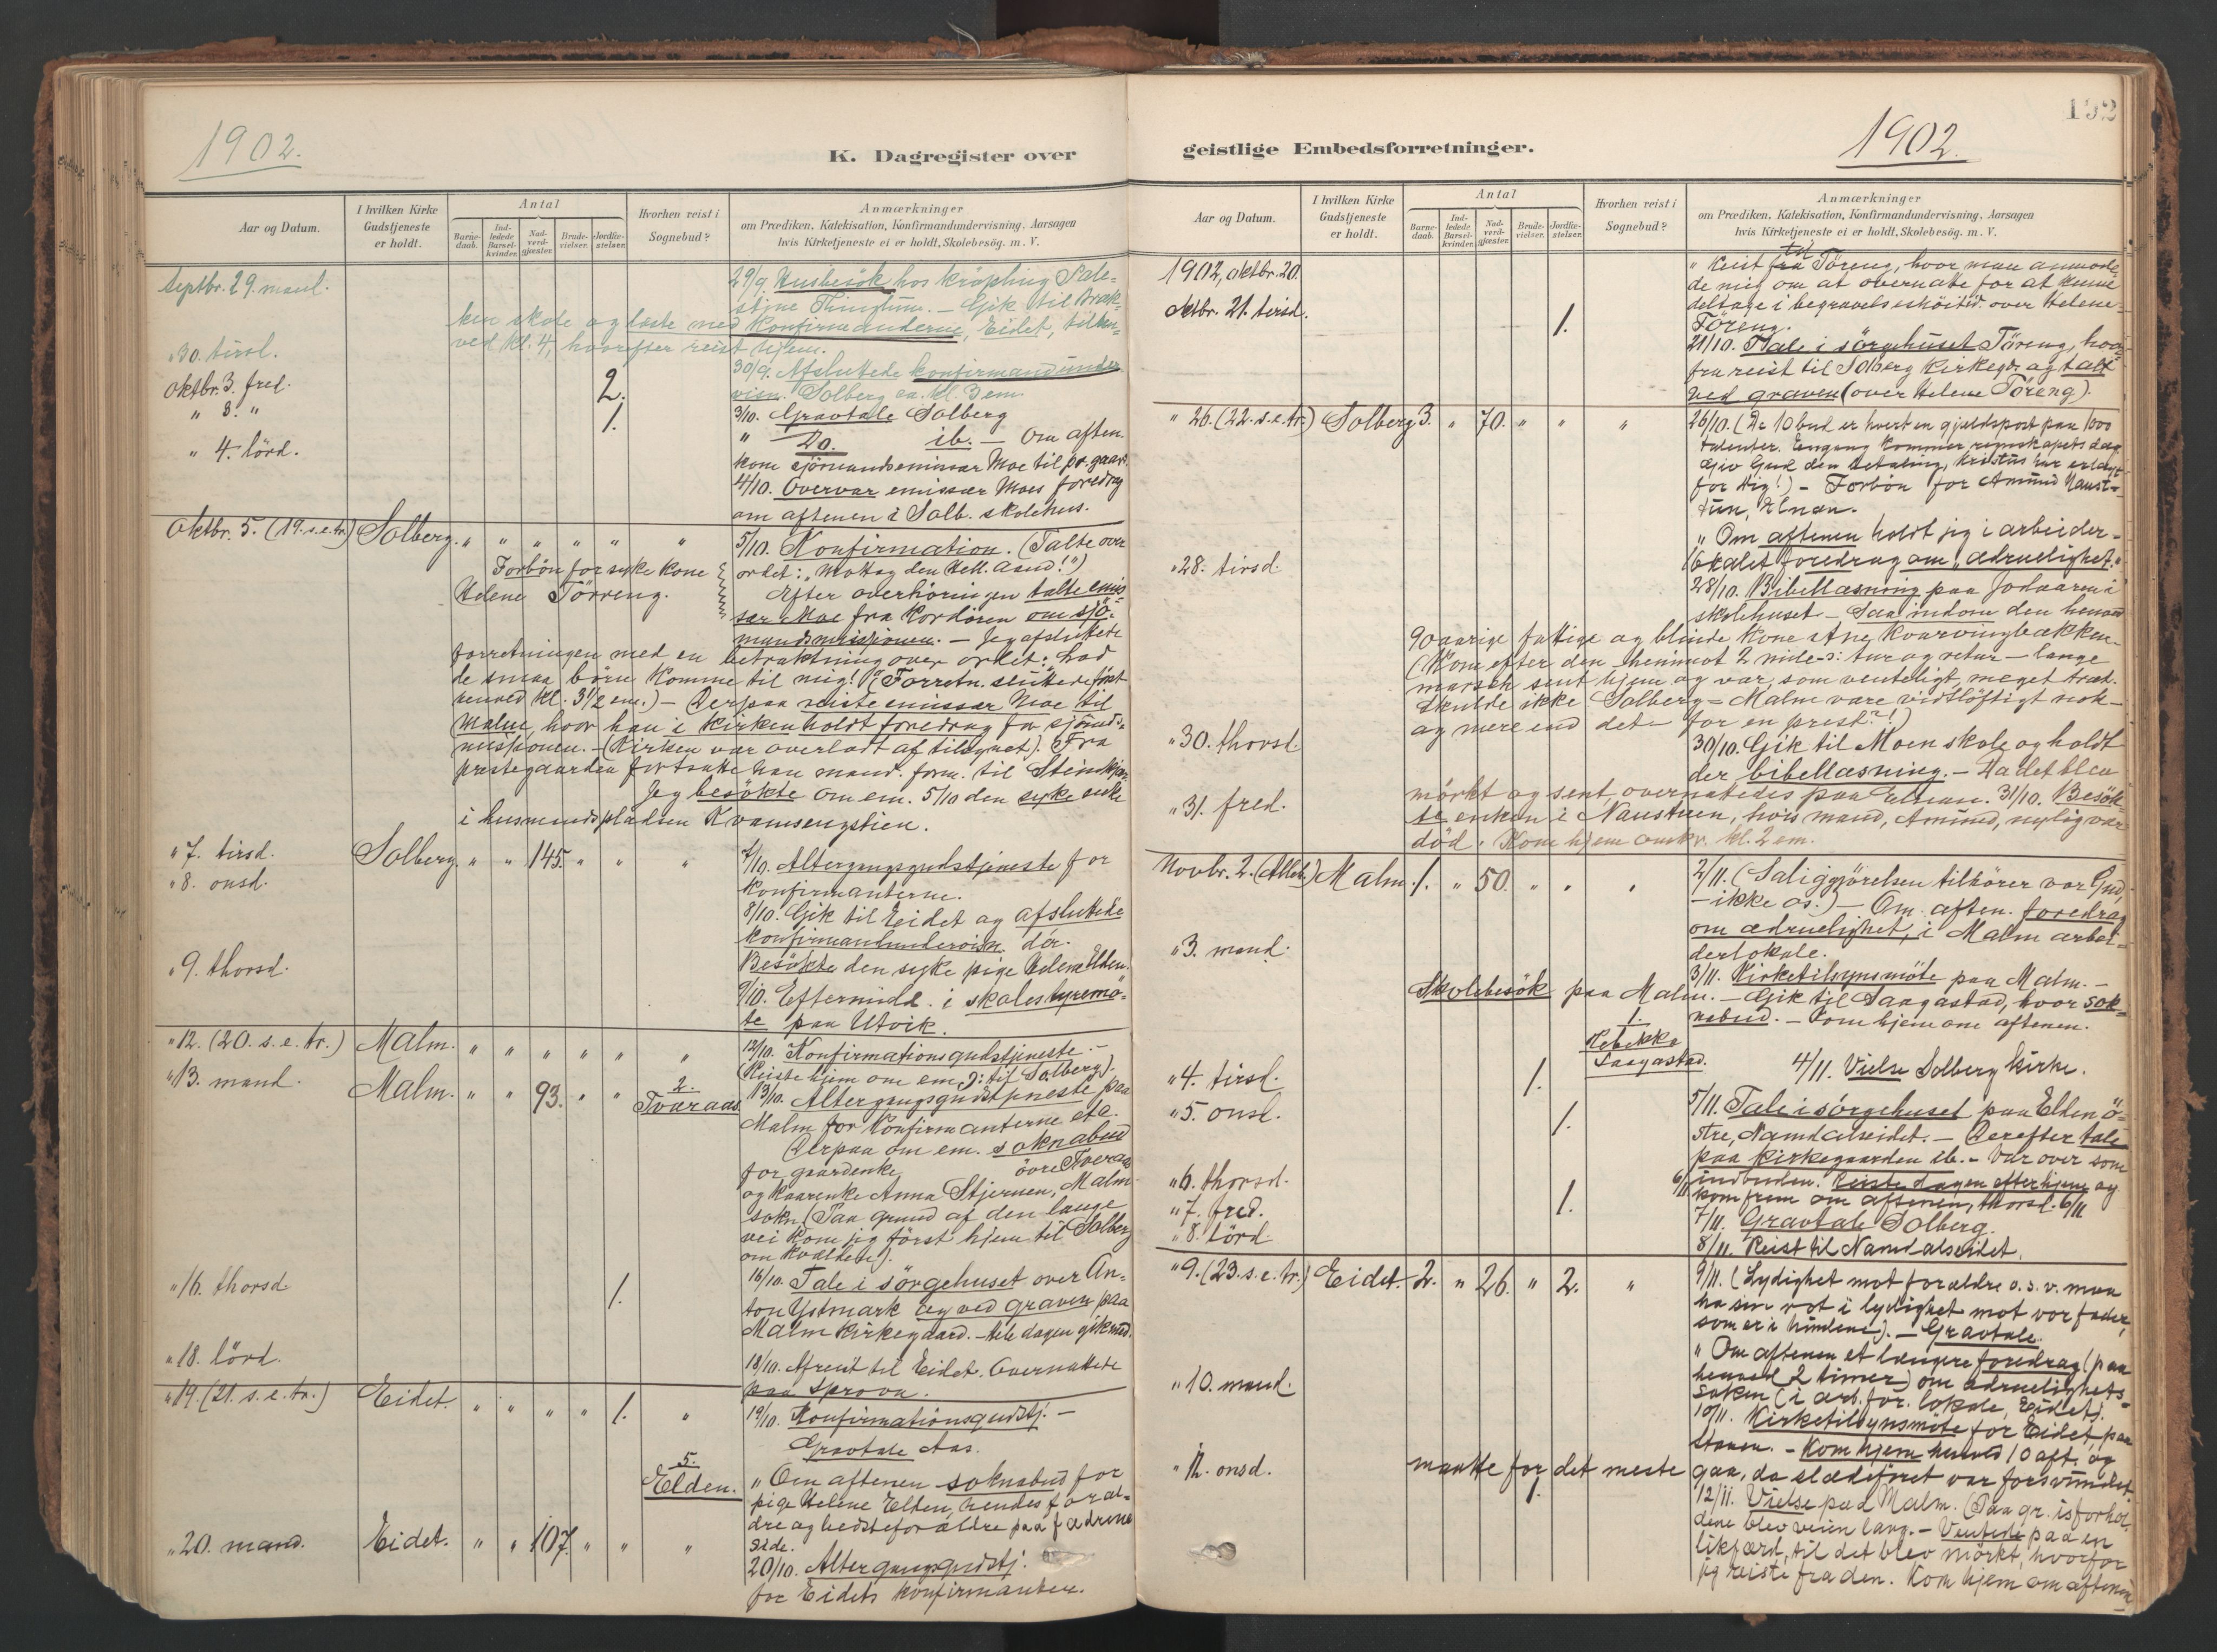 1902.
K. Dagregister over
Aar og Datum.
I hvilken Kirke Gudstjeneste er holdt.
Antal
Barne-daab.
Ind-ledede Barsel-kvinder.
Nad-verd-gjæster.
Brude-vielser.
Jordfæ-stelser.
Hvorhen reist i Sognebud?
Anmærkninger
om Prædiken, Katekisation, Konfirmandundervisning, Aarsagen
hvis Kirketjeneste ei er holdt, Skolebesøg. m. V.
Septbr. 29. mand.
29/9. Husbesök hos kröpling Pale-
stine Thingtun. - Gik til Brak-
ken skole og læste med konfirmanderne, Eidet, til hen-
ved kl. 4, hvorefter reist hjem.
" 30. tirsd.
30/9. Afsluttede konfirmandunder
visn. Solberg ca. kl. 3 em.
Oktbr. 3. fred.
2.
3/10. Gravtale Solberg
" 3. "
1.
" Do. ib. - Om aften.
kom sjömandsemissær Moe til pr.gaard.
" 4. lörd.
4/10. Overvar emissær Moes foredrag
om aftenen i Solb. skolehus.
Oktbr. 5. (19. s. e. tr.) Solberg. " " " " " "
5/10. Konfirmation. (Talte over
ordet: "Motag den Hell. Aand!")
Forbön for syke kone
Helene Törreng.
Efter overhöringen talte emis-
sær Moe fra kordören om sjö-
mandsmissionen. - Jeg afsluttede
forretningen med en betraktning over ordet: Lad
de smaa börn komme til mig! (Forretn. sluttede först
henved kl. 3 1/2 em.) - Derpaa reiste emissær Moe til
Malm, hvor han i kirken holdt foredrag for sjömds-
missionen. - (Kirken var overladt af tilsynet). Fra
prestegaarden fortsatte han mand. form. til Stenkjær.
Jeg besökte om em. 5/10 den syke
i husmandspladsen Kvamsengstien.
" 7. tirsd. Solberg. " " 145. " " "
7/10. Altergangsgudstjeneste for
konfirmanterne.
" 8. onsd.
8/10. Gik til Eidet og afsluttede
konfirmandundervisn. dér.
Besökte den syke pige Helene Elden.
" 9. thorsd.
9/10. Eftermidd. i skolestyremö-
te paa Utvik.
" 12. (20. s. e. tr.) Malm. " " " " " "
12/10. Konfirmationsgudstjeneste. -
(Reiste hjem om em. ɔ: til Solberg).
" 13. mand. Malm. " " 93. " "
2.
Tvaraas
13/10. Altergangsgudstjeneste paa
Malm for konfirmanterne etc.
Derpaa om em. soknebud
for gaardenke övre Tveraas
og kaarenke Anna Stjernen, Malm
sokn. (Paa grund af den lange
vei kom jeg först hjem til Solberg
om kvælden).
" 16. thorsd
1.
16/10. Tale i sörgehuset over An-
ton Ystmark og ved graven paa
Malm kirkegaard. - Hele dagen gik med.
" 18. lörd.
18/10. Afreist til Eidet. Overnattede
paa Sprova.
" 19. (21. s. e. tr.) Eidet. " " " " 1. "
19/10. Konfirmationsgudstj. -
Gravtale Aas.
5.
Elden.
" Om aftenen soknebud for
pige Helene Elden, hendes foræl-
dre og bedsteforældre paa fædrene
side.
" 20. mand. Eidet. " " 107. " " "
20/10. Altergangsgudstj.
for Eidets konfirmanter.
132
1902.
geistlige Embedsforretninger.
Aar og Datum.
I hvilken Kirke Gudstjeneste er holdt.
Antal
Barne-daab.
Ind-ledede Barsel-kvinder.
Nad-verd-gjæster.
Brude-vielser.
Jordfæ-stelser.
Hvorhen reist i Sognebud?
Anmærkninger
om Prædiken, Katekisation, Konfirmandundervisning, Aarsagen
hvis Kirketjeneste ei er holdt, Skolebesög. m. V.
1902, oktbr. 20.
" Reist til Töreng, hvor man anmode-
de mig om at overnatte for at kunne
deltage i begravelseshöitid. over Helene
Töreng.
Oktbr. 21. tirsd.
1.
21/10. Tale i sörgehuset Töreng, hvor-
fra reist til Solberg kirkegd. og talt
ved graven (over Helene Töreng).
" 26. (22. s. e. tr.) Solberg 3. " 70. " " "
26/10. (De 10 bud er hvert en gjeldspost paa 1000
talenter. Engang kommer regnskapets dag.
Giv Gud den betaling, Kristus har erlagt
for dig!) - Forbön for Amund Naust-
tun, Elnan.
" Om aftenen holdt jeg i arbeider-
lokalet foredrag om "ædruelighet."
" 28. tirsd.
28/10. Bibellæsning paa
skolehuset - Saa indom den henved
90 aarige fattige og blinde kone Ane Kvarvingbakken.
(Kom efter den henimot 2 mile ɔ: tur og retur - lange
marsch sent hjem og var, som venteligt, meget træt.
Skulde ikke Solberg - Malm være vidtlöftigt nok -
og mere end det - for en prest?!)
" 30. thorsd.
30/10. Gik til Moen skole og holdt
der bibellæsning. - Da det blev
mörkt og sent, overnattedes paa Elnan.
" 31. fred.
31/10. Besök-
te enken i Naustuen, hvis mand, Amund, nylig var
död. Kom hjem omkr. kl. 2 em.
Novbr. 2. (Alleh.) Malm. 1. " 50. " " "
2/11. (Saliggjörelsen tilhörer vor Gud,
- ikke os.) - Om aften. foredrag
om ædruelighet, i Malm arbei-
derlokale.
" 3. mand.
3/11. Kirketilsynsmöte paa Malm. -
Skolebesök paa Malm. - Gik til Saagastad, hvor sok-
nebud. - Kom hjem om aftenen.
1.
Rebekka
Saagastad.
" 4. tirsd.
1.
4/11. Vielse Solberg kirke.
" 5. onsd.
1.
5/11. Tale i sörgehuset paa Elden ö-
stre, Namdalseidet. - Derefter tale
paa kirkegaarden ib. - Var over som
indbuden.
" 6. thorsd.
6/11 Reiste dagen efter hjem og
kom frem om aftenen, thorsd. 6/11
" 7. fred.
1.
7/11. Gravtale Solberg.
" 8. lörd.
8/11. Reist til Namdalseidet.
" 9. (23. s. e. tr.) Eidet. 2. " 26. " 2. "
9/11. (Lydighet mot forældre o. s. v. maa
ha sin rot i lydighet mot vor fader,
som er i himlene). - Gravtale.
" Om aftenen et længere foredrag (paa
henved 2 timer) om ædruelighets-
saken (i arb.for. lokale, Eidet).
" 10. mand.
10/11. Kirketilsynsmöte for Eidet, paa
Staven. - Kom hjem henved 10 aft. og
maatte for det meste gaa, da slædeföret var forsvundet.
" 12. onsd.
1.
12/11. Vielse paa Malm. (Paa gr. isforhol-
dene blev veien lang. - Ventede paa en
likfærd, til det blev mörkt, hvorfor
jeg reiste fra den. Kom hjem om aftenen